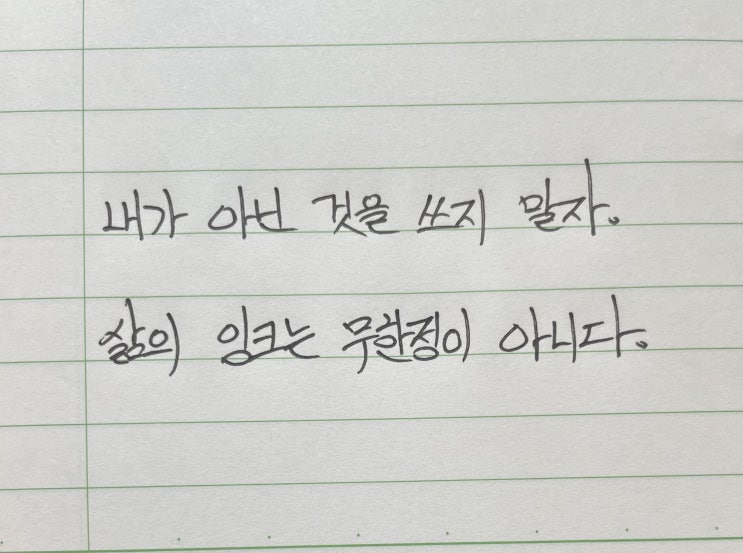 내가 아닌 것을 쓰지 말자.
삶의 잉크는 무한정이 아니다.